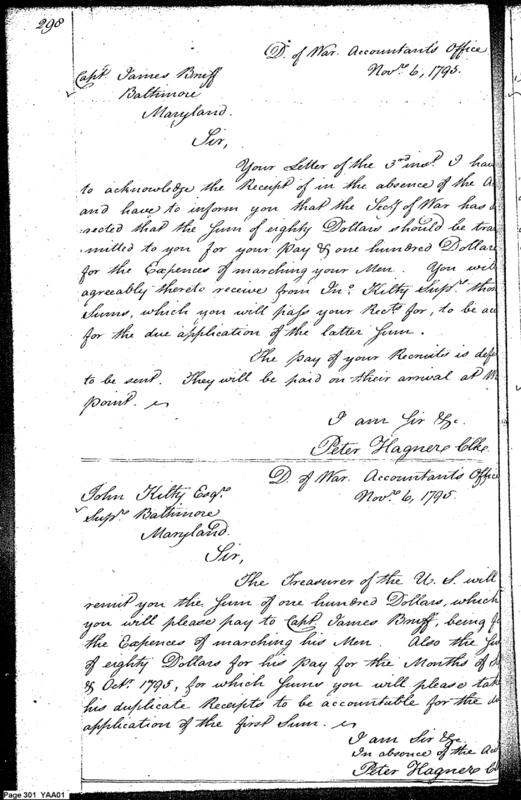 298
D. of War. Accountants Office
Novr. 6, 1795.
Capt. James Bruff
Baltimore
Maryland.
Sir,
Your Letter of the 3rd inst. I hav
to acknowledge the Receipt of in the absence of the A
and have to inform you that the Secy. of War has d
rected that the Sum of eighty Dollars should be tra
mitted to you for your pay & one hundred Dollars
for the Expences of marching your Men. You will
agreeably thereto receive from Jno. Kilty Supr. thos
Sums, which you will pass your Rects. for, to be ac
for the due application of the latter Sum.
The pay of your Recruits is def
to be sent. They will be paid on their arrival at W
point.
I am Sir &c.
Peter Hagner Clk.
D. of War. Accountants Office
Novr. 6, 1795.
John Kilty Esqr.
Supr. Baltimore
Maryland.
Sir,
The Treasurer of the U. S. will
remit you the Sum of one hundred Dollars, which
you will please pay to Capt. James Bruff, being f
the Expences of marching his Men. Also the Su
of eighty Dollars for his pay for the Months of S
& Octr. 1795, for which Sums you will please tak
his duplicate Receipts to be accountable for the du
application of the first Sum.
I am Sir &c.
In absence of the Acc
Peter Hagner Cl
Page 301 YAA01